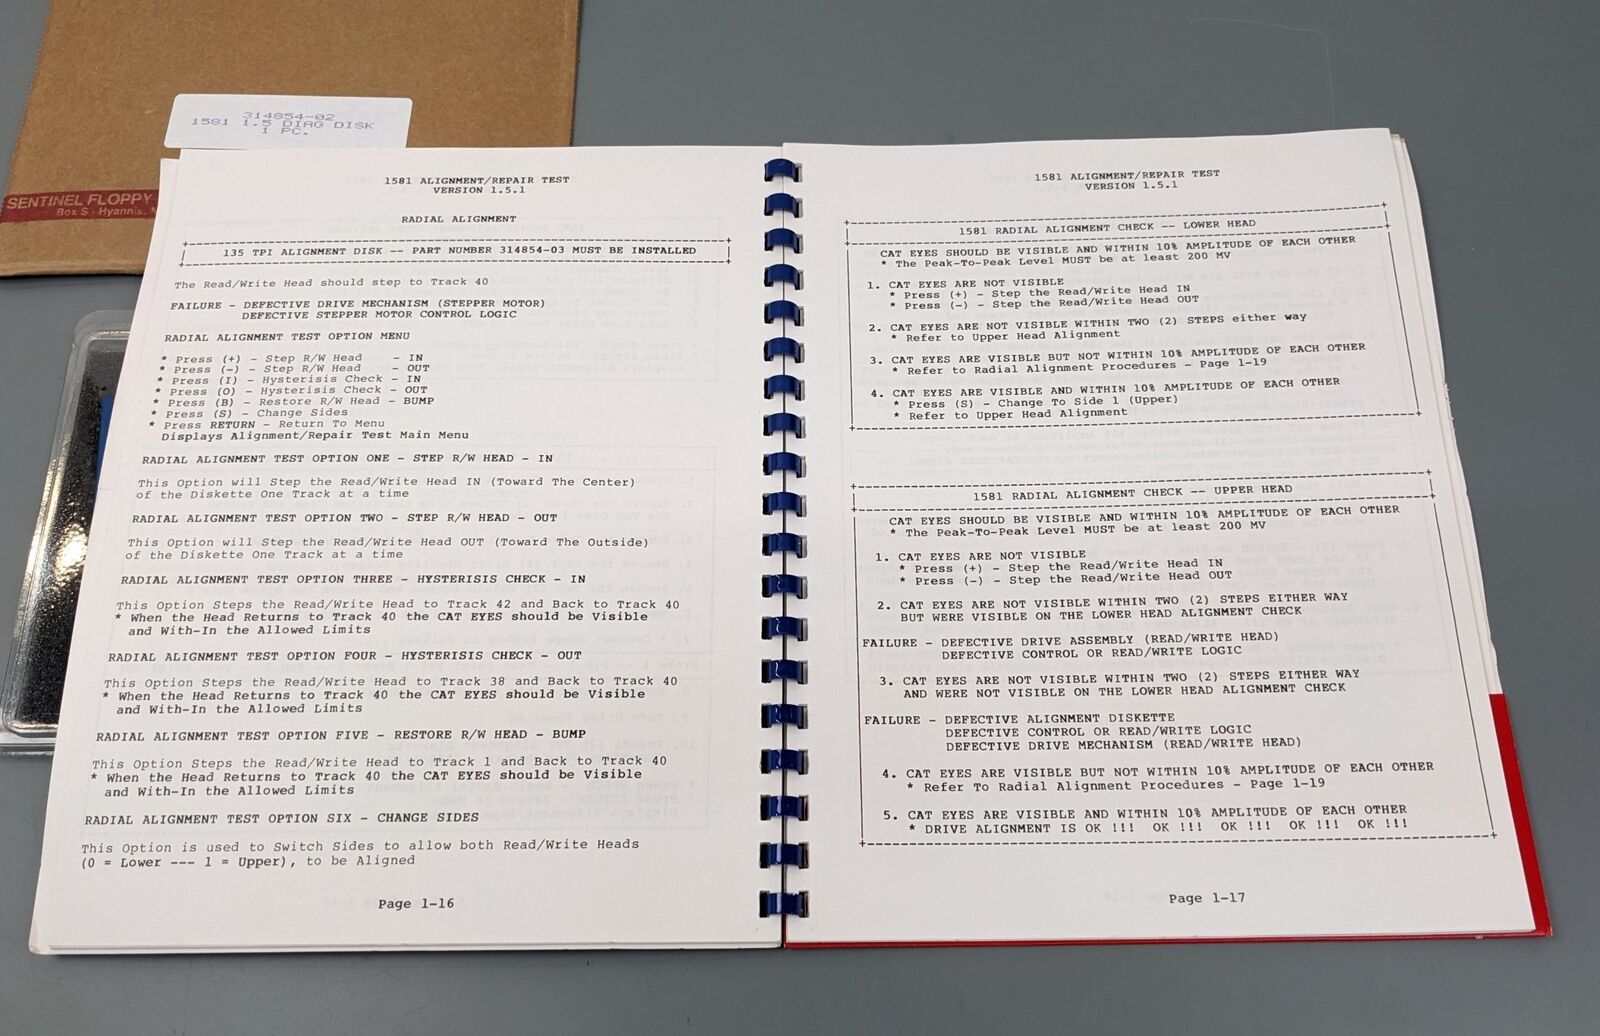 314854-02
1581 1.5 DIAG DISK
1 PC.
SENTINEL FLOPPY
Box S - Hyannis,
1581 ALIGNMENT/REPAIR TEST
VERSION 1.5.1
RADIAL ALIGNMENT
135 TPI ALIGNMENT DISK -- PART NUMBER 314854-03 MUST BE INSTALLED
The Read/Write Head should step to Track 40
FAILURE - DEFECTIVE DRIVE MECHANISM (STEPPER MOTOR)
DEFECTIVE STEPPER MOTOR CONTROL LOGIC
RADIAL ALIGNMENT TEST OPTION MENU
* Press (+) - Step R/W Head - IN
* Press (-) - Step R/W Head - OUT
* Press (I) - Hysterisis Check - IN
* Press (O) - Hysterisis Check - OUT
* Press (B) - Restore R/W Head - BUMP
* Press (S) - Change Sides
* Press RETURN - Return To Menu
Displays Alignment/Repair Test Main Menu
RADIAL ALIGNMENT TEST OPTION ONE - STEP R/W HEAD - IN
This Option will Step the Read/Write Head IN (Toward The Center)
of the Diskette One Track at a time
RADIAL ALIGNMENT TEST OPTION TWO - STEP R/W HEAD - OUT
This Option will Step the Read/Write Head OUT (Toward The Outside)
of the Diskette One Track at a time
RADIAL ALIGNMENT TEST OPTION THREE - HYSTERISIS CHECK - IN
This Option Steps the Read/Write Head to Track 42 and Back to Track 40
* When the Head Returns to Track 40 the CAT EYES should be Visible
and With-In the Allowed Limits
RADIAL ALIGNMENT TEST OPTION FOUR - HYSTERISIS CHECK - OUT
This Option Steps the Read/Write Head to Track 38 and Back to Track 40
* When the Head Returns to Track 40 the CAT EYES should be Visible
and With-In the Allowed Limits
RADIAL ALIGNMENT TEST OPTION FIVE - RESTORE R/W HEAD - BUMP
This Option Steps the Read/Write Head to Track 1 and Back to Track 40
* When the Head Returns to Track 40 the CAT EYES should be Visible
and With-In the Allowed Limits
RADIAL ALIGNMENT TEST OPTION SIX - CHANGE SIDES
This Option is used to Switch Sides to allow both Read/Write Heads
(0 = Lower --- 1 = Upper), to be Aligned
Page 1-16
1581 ALIGNMENT/REPAIR TEST
VERSION 1.5.1
1581 RADIAL ALIGNMENT CHECK -- LOWER HEAD
CAT EYES SHOULD BE VISIBLE AND WITHIN 10% AMPLITUDE OF EACH OTHER
* The Peak-To-Peak Level MUST be at least 200 MV
1. CAT EYES ARE NOT VISIBLE
* Press (+) - Step the Read/Write Head IN
* Press (-) - Step the Read/Write Head OUT
2. CAT EYES ARE NOT VISIBLE WITHIN TWO (2) STEPS either way
* Refer to Upper Head Alignment
3. CAT EYES ARE VISIBLE BUT NOT WITHIN 10% AMPLITUDE OF EACH OTHER
* Refer to Radial Alignment Procedures - Page 1-19
4. CAT EYES ARE VISIBLE AND WITHIN 10% AMPLITUDE OF EACH OTHER
* Press (S) - Change To Side 1 (Upper)
* Refer to Upper Head Alignment
1581 RADIAL ALIGNMENT CHECK -- UPPER HEAD
CAT EYES SHOULD BE VISIBLE AND WITHIN 10% AMPLITUDE OF EACH OTHER
* The Peak-To-Peak Level MUST be at least 200 MV
1. CAT EYES ARE NOT VISIBLE
* Press (+) - Step the Read/Write Head IN
* Press (-) - Step the Read/Write Head OUT
2. CAT EYES ARE NOT VISIBLE WITHIN TWO (2) STEPS EITHER WAY
BUT WERE VISIBLE ON THE LOWER HEAD ALIGNMENT CHECK
FAILURE - DEFECTIVE DRIVE ASSEMBLY (READ/WRITE HEAD)
DEFECTIVE CONTROL OR READ/WRITE LOGIC
3. CAT EYES ARE NOT VISIBLE WITHIN TWO (2) STEPS EITHER WAY
AND WERE NOT VISIBLE ON THE LOWER HEAD ALIGNMENT CHECK
FAILURE - DEFECTIVE ALIGNMENT DISKETTE
DEFECTIVE CONTROL OR READ/WRITE LOGIC
DEFECTIVE DRIVE MECHANISM (READ/WRITE HEAD)
4. CAT EYES ARE VISIBLE BUT NOT WITHIN 10% AMPLITUDE OF EACH OTHER
* Refer To Radial Alignment Procedures - Page 1-19
5. CAT EYES ARE VISIBLE AND WITHIN 10% AMPLITUDE OF EACH OTHER
* DRIVE ALIGNMENT IS OK !!! OK !!! OK !!! OK !!! OK !!!
Page 1-17